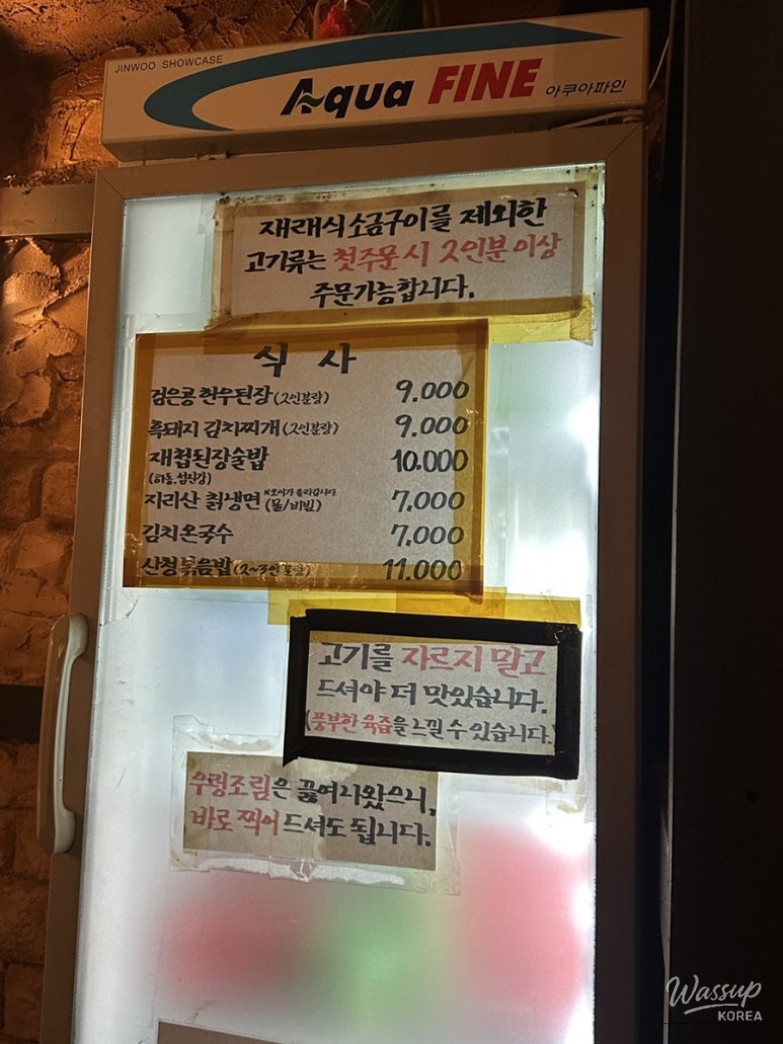 JINWOO SHOWCASE
Aqua FINE 아쿠아파인
재래식 소금구이를 제외한
고기류는 첫주문시 2인분 이상
주문가능합니다.
식 사
검은콩 한우된장 (2인분량) 9.000
흑돼지 김치찌개 (2인분량) 9.000
재첩된장술밥 10.000
(하동.섬진강)
지리산 칡냉면 (물/비빔) 7,000
김치온국수 7,000
산청볶음밥 (2~3인분량) 11.000
고기를 자르지 말고
드셔야 더 맛있습니다.
(풍부한 육즙을 느낄 수 있습니다.)
우렁조림은 끓여나왔으니,
바로 찍어 드셔도 됩니다.
Wassup
KOREA